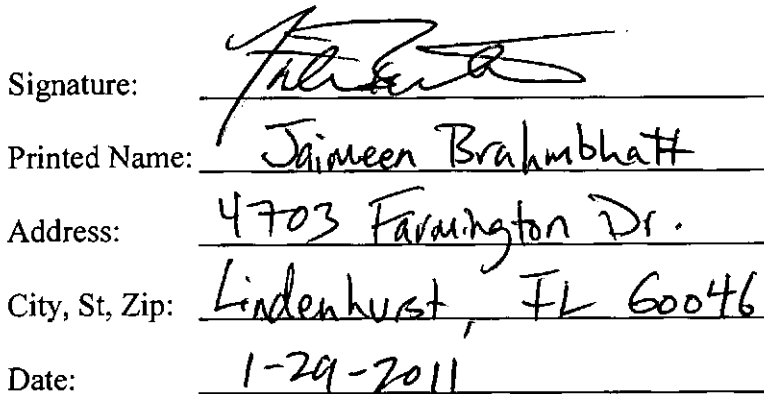 Signature:
Printed Name: Jaimeen Brahmbhatt
Address: 4703 Farmington Dr.
City, St, Zip: Lindenhurst, IL 60046
Date: 1-29-2011